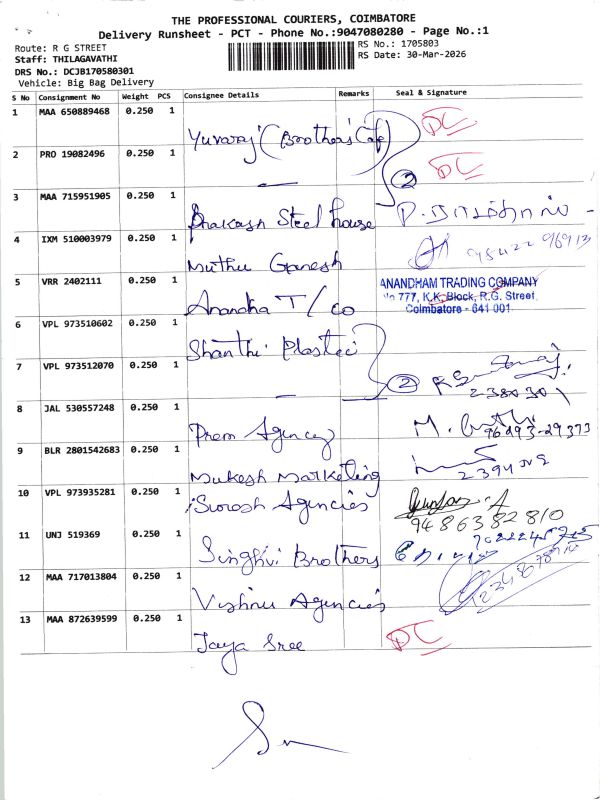 THE PROFESSIONAL COURIERS, COIMBATORE
Delivery Runsheet - PCT - Phone No.:9047080280 - Page No.:1
Route: R G STREET
RS No.: 1705803
Staff: THILAGAVATHI
RS Date: 30-Mar-2026
DRS No.: DCJB170580301
Vehicle: Big Bag Delivery
S No Consignment No Weight PCS Consignee Details Remarks Seal & Signature
1 MAA 650889468 0.250 1 Yuvaraj (Brothers Cafe) DC
2 PRO 19082496 0.250 1 — 2 DC
3 MAA 715951905 0.250 1 Prakash Steel house
4 IXM 510003979 0.250 1 Muthu Ganesh
5 VRR 2402111 0.250 1 Anandha T/co
ANANDHAM TRADING COMPANY
No 777, K.K. Block, R.G. Street,
Coimbatore - 641 001.
6 VPL 973510602 0.250 1 Shanthi Plastic
7 VPL 973512070 0.250 1 — 2
2380301
8 JAL 530557248 0.250 1 Prem Agency M.
96293-29373
9 BLR 2801542683 0.250 1 Mukesh Marketing
10 VPL 973935281 0.250 1 Suresh Agencies
9486382810
11 UNJ 519369 0.250 1 Singhvi Brothers
12 MAA 717013804 0.250 1 Vishnu Agencies
13 MAA 872639599 0.250 1 Jaya Sree DC